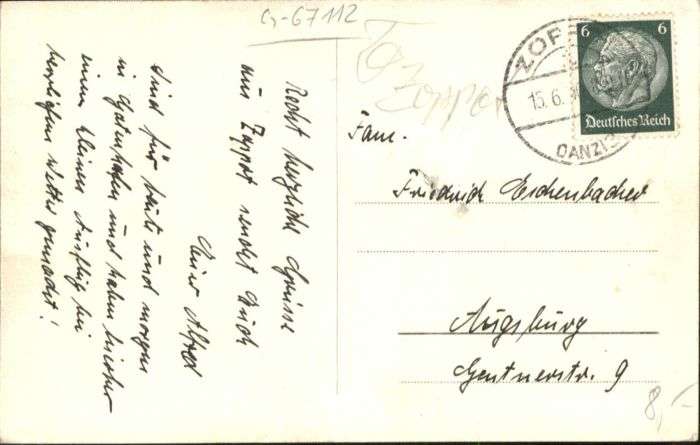 G-67112
Recht herzliche Grüsse
aus Zoppot sendet Euch
Euer Alfred
Sind für heute und morgen
in Gotenhafen und haben hierher
einen kleinen Ausflug bei
herrlichem Wetter gemacht!
Zoppot
6 6
Deutsches Reich
ZOP
15.6.
DANZIG
Fam.
Friedrich Eschenbacher
Augsburg
Gentnerstr. 9
8,-